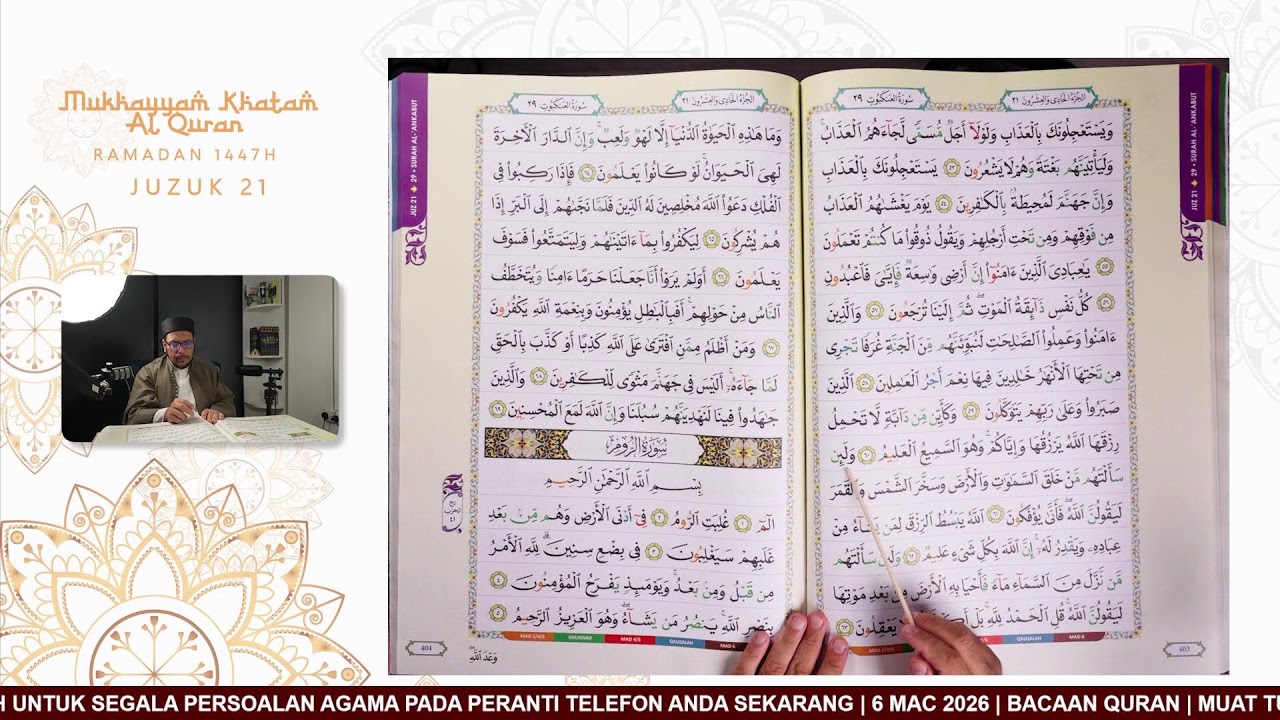 Mukhayyam Khatam
Al Quran
RAMADAN 1447H
JUZUK 21
سُورَةُ العَنكَبُوت ٢٩
الجُزءُ الحَادِى وَالعِشْرُونَ ٢١
JUZ 21 ◆ 29 • SURAH AL-'ANKABUT
وَيَسْتَعْجِلُونَكَ بِالْعَذَابِ وَلَوْلَآ أَجَلٌ مُّسَمًّى لَّجَآءَهُمُ الْعَذَابُ
وَلَيَأْتِيَنَّهُم بَغْتَةً وَهُمْ لَا يَشْعُرُونَ ٥٣ يَسْتَعْجِلُونَكَ بِالْعَذَابِ
وَإِنَّ جَهَنَّمَ لَمُحِيطَةٌۢ بِالْكَٰفِرِينَ ٥٤ يَوْمَ يَغْشَىٰهُمُ الْعَذَابُ
مِن فَوْقِهِمْ وَمِن تَحْتِ أَرْجُلِهِمْ وَيَقُولُ ذُوقُوا۟ مَا كُنتُمْ تَعْمَلُونَ
٥٥ يَٰعِبَادِىَ الَّذِينَ ءَامَنُوٓا۟ إِنَّ أَرْضِى وَٰسِعَةٌ فَإِيَّٰىَ فَاعْبُدُونِ
٥٦ كُلُّ نَفْسٍ ذَآئِقَةُ الْمَوْتِ ۖ ثُمَّ إِلَيْنَا تُرْجَعُونَ ٥٧ وَالَّذِينَ
ءَامَنُوا۟ وَعَمِلُوا۟ الصَّٰلِحَٰتِ لَنُبَوِّئَنَّهُم مِّنَ الْجَنَّةِ غُرَفًا تَجْرِى
مِن تَحْتِهَا الْأَنْهَٰرُ خَٰلِدِينَ فِيهَا ۚ نِعْمَ أَجْرُ الْعَٰمِلِينَ ٥٨ الَّذِينَ
صَبَرُوا۟ وَعَلَىٰ رَبِّهِمْ يَتَوَكَّلُونَ ٥٩ وَكَأَيِّن مِّن دَآبَّةٍ لَّا تَحْمِلُ
رِزْقَهَا اللَّهُ يَرْزُقُهَا وَإِيَّاكُمْ ۚ وَهُوَ السَّمِيعُ الْعَلِيمُ ٦٠ وَلَئِن
سَأَلْتَهُم مَّنْ خَلَقَ السَّمَٰوَٰتِ وَالْأَرْضَ وَسَخَّرَ الشَّمْسَ وَالْقَمَرَ
لَيَقُولُنَّ اللَّهُ ۖ فَأَنَّىٰ يُؤْفَكُونَ ٦١ اللَّهُ يَبْسُطُ الرِّزْقَ لِمَن يَشَآءُ مِنْ
عِبَادِهِۦ وَيَقْدِرُ لَهُۥٓ ۚ إِنَّ اللَّهَ بِكُلِّ شَىْءٍ عَلِيمٌ ٦٢ وَلَئِن سَأَلْتَهُم
مَّن نَّزَّلَ مِنَ السَّمَآءِ مَآءً فَأَحْيَا بِهِ الْأَرْضَ مِنۢ بَعْدِ مَوْتِهَا
لَيَقُولُنَّ اللَّهُ ۚ قُلِ الْحَمْدُ لِلَّهِ ۚ بَلْ يَعْقِلُونَ ٦٣
403
سُورَةُ العَنكَبُوت ٢٩
الجُزءُ الحَادِى وَالعِشْرُونَ ٢١
JUZ 21 ◆ 29 • SURAH AL-'ANKABUT
وَمَا هَٰذِهِ الْحَيَوٰةُ الدُّنْيَآ إِلَّا لَهْوٌ وَلَعِبٌ ۚ وَإِنَّ الدَّارَ الْآخِرَةَ
لَهِىَ الْحَيَوَانُ ۚ لَوْ كَانُوا۟ يَعْلَمُونَ ٦٤ فَإِذَا رَكِبُوا۟ فِى
الْفُلْكِ دَعَوُا۟ اللَّهَ مُخْلِصِينَ لَهُ الدِّينَ فَلَمَّا نَجَّىٰهُمْ إِلَى الْبَرِّ إِذَا
هُمْ يُشْرِكُونَ ٦٥ لِيَكْفُرُوا۟ بِمَآ ءَاتَيْنَٰهُمْ وَلِيَتَمَتَّعُوا۟ ۖ فَسَوْفَ
يَعْلَمُونَ ٦٦ أَوَلَمْ يَرَوْا۟ أَنَّا جَعَلْنَا حَرَمًا ءَامِنًا وَيُتَخَطَّفُ
النَّاسُ مِنْ حَوْلِهِمْ ۚ أَفَبِالْبَٰطِلِ يُؤْمِنُونَ وَبِنِعْمَةِ اللَّهِ يَكْفُرُونَ
٦٧ وَمَنْ أَظْلَمُ مِمَّنِ افْتَرَىٰ عَلَى اللَّهِ كَذِبًا أَوْ كَذَّبَ بِالْحَقِّ
لَمَّا جَآءَهُۥٓ ۚ أَلَيْسَ فِى جَهَنَّمَ مَثْوًى لِّلْكَٰفِرِينَ ٦٨ وَالَّذِينَ
جَٰهَدُوا۟ فِينَا لَنَهْدِيَنَّهُمْ سُبُلَنَا ۚ وَإِنَّ اللَّهَ لَمَعَ الْمُحْسِنِينَ ٦٩
سُورَةُ الرُّومِ
بِسْمِ اللَّهِ الرَّحْمَٰنِ الرَّحِيمِ
الٓمٓ ١ غُلِبَتِ الرُّومُ ٢ فِىٓ أَدْنَى الْأَرْضِ وَهُم مِّنۢ بَعْدِ
غَلَبِهِمْ سَيَغْلِبُونَ ٣ فِى بِضْعِ سِنِينَ ۗ لِلَّهِ الْأَمْرُ
مِن قَبْلُ وَمِنۢ بَعْدُ ۚ وَيَوْمَئِذٍ يَفْرَحُ الْمُؤْمِنُونَ ٤
بِنَصْرِ اللَّهِ ۚ يَنصُرُ مَن يَشَآءُ ۖ وَهُوَ الْعَزِيزُ الرَّحِيمُ ٥
MAD 2/4/5 GHUNNAH MAD 4/5 QALQALAH MAD 6
404
وَعْدَ اللَّهِ
H UNTUK SEGALA PERSOALAN AGAMA PADA PERANTI TELEFON ANDA SEKARANG | 6 MAC 2026 | BACAAN QURAN | MUAT TU